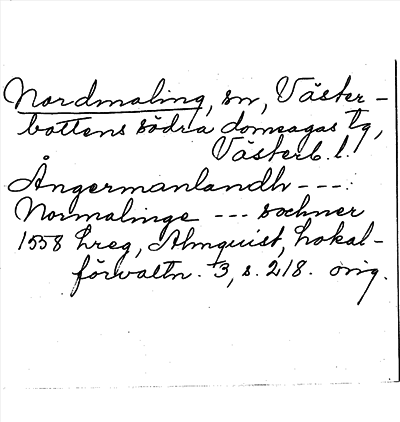 Nordmaling, sn, Väster-
bottens södra domsagas tg,
Västerb. l.
Ångermanlandh ---:
Normalinge --- sochner
1558 hreg, Almquist, Lokal-
förvaltn. 3, s. 218. orig.